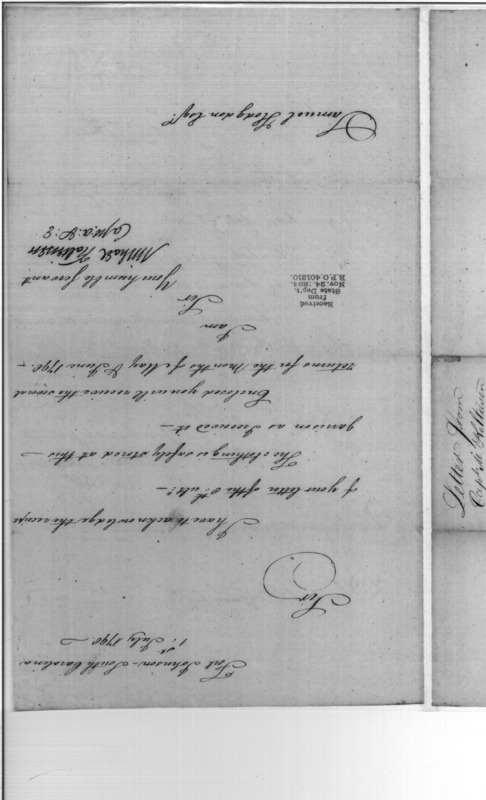 Fort Johnson - South Carolina
1st July 1790
Sir
I have to acknowledge the receipt
of your letter of the 8th ult: -
The clothing is safely stored at this -
garrison as I received it -
Enclosed you will receive the several
returns for the months of May & June 1790 -
I am
Sir
Your humble servant
Capn: A: &:
Samuel Hodgdon Esqr.
Received
from
State Dep't.
Nov. 24. 1894.
R.P.O. 401810.
Letter from